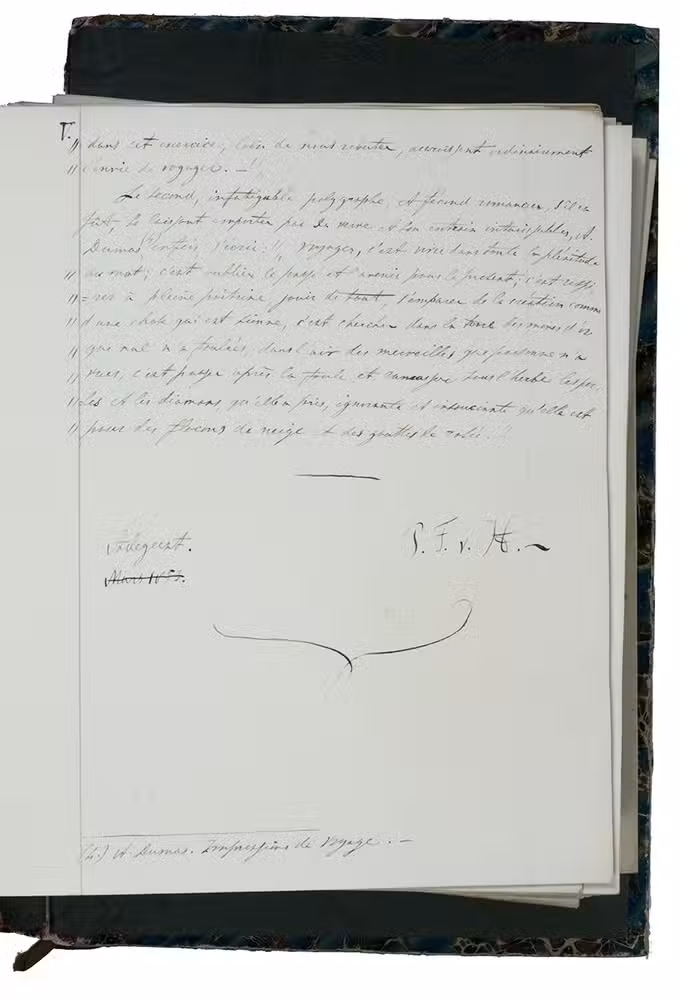 V.
" dans cet exercice, loin de nous rebuter, accroissent ordinairement
" l'envie de voyager. – "
Le second, infatigable polygraphe, et fécond romancier, s'il en
fût, se laissant emporter par sa verve et son entrain intarissables, A.
Dumas enfin s'écrie: " Voyager, c'est vivre dans toute la plénitude
" du mot; c'est oublier le passé et l'avenir pour le présent; c'est respi
" =rer à pleine poitrine, jouir de tout, s'emparer de la création comme
" d'une chose qui est sienne, c'est chercher dans la terre des mines d'or
" que nul n'a fouillées, dans l'air des merveilles que personne n'a
" vues, c'est passer après la foule et ramasser sous l'herbe les per
" les et les diamans, qu'elle a pris, ignorante et insouciante qu'elle est
" pour des flocons de neige et des gouttes de rosée. "
P. F. v. H. –
Mars 185
(1.) A. Dumas. Impressions de Voyage. –